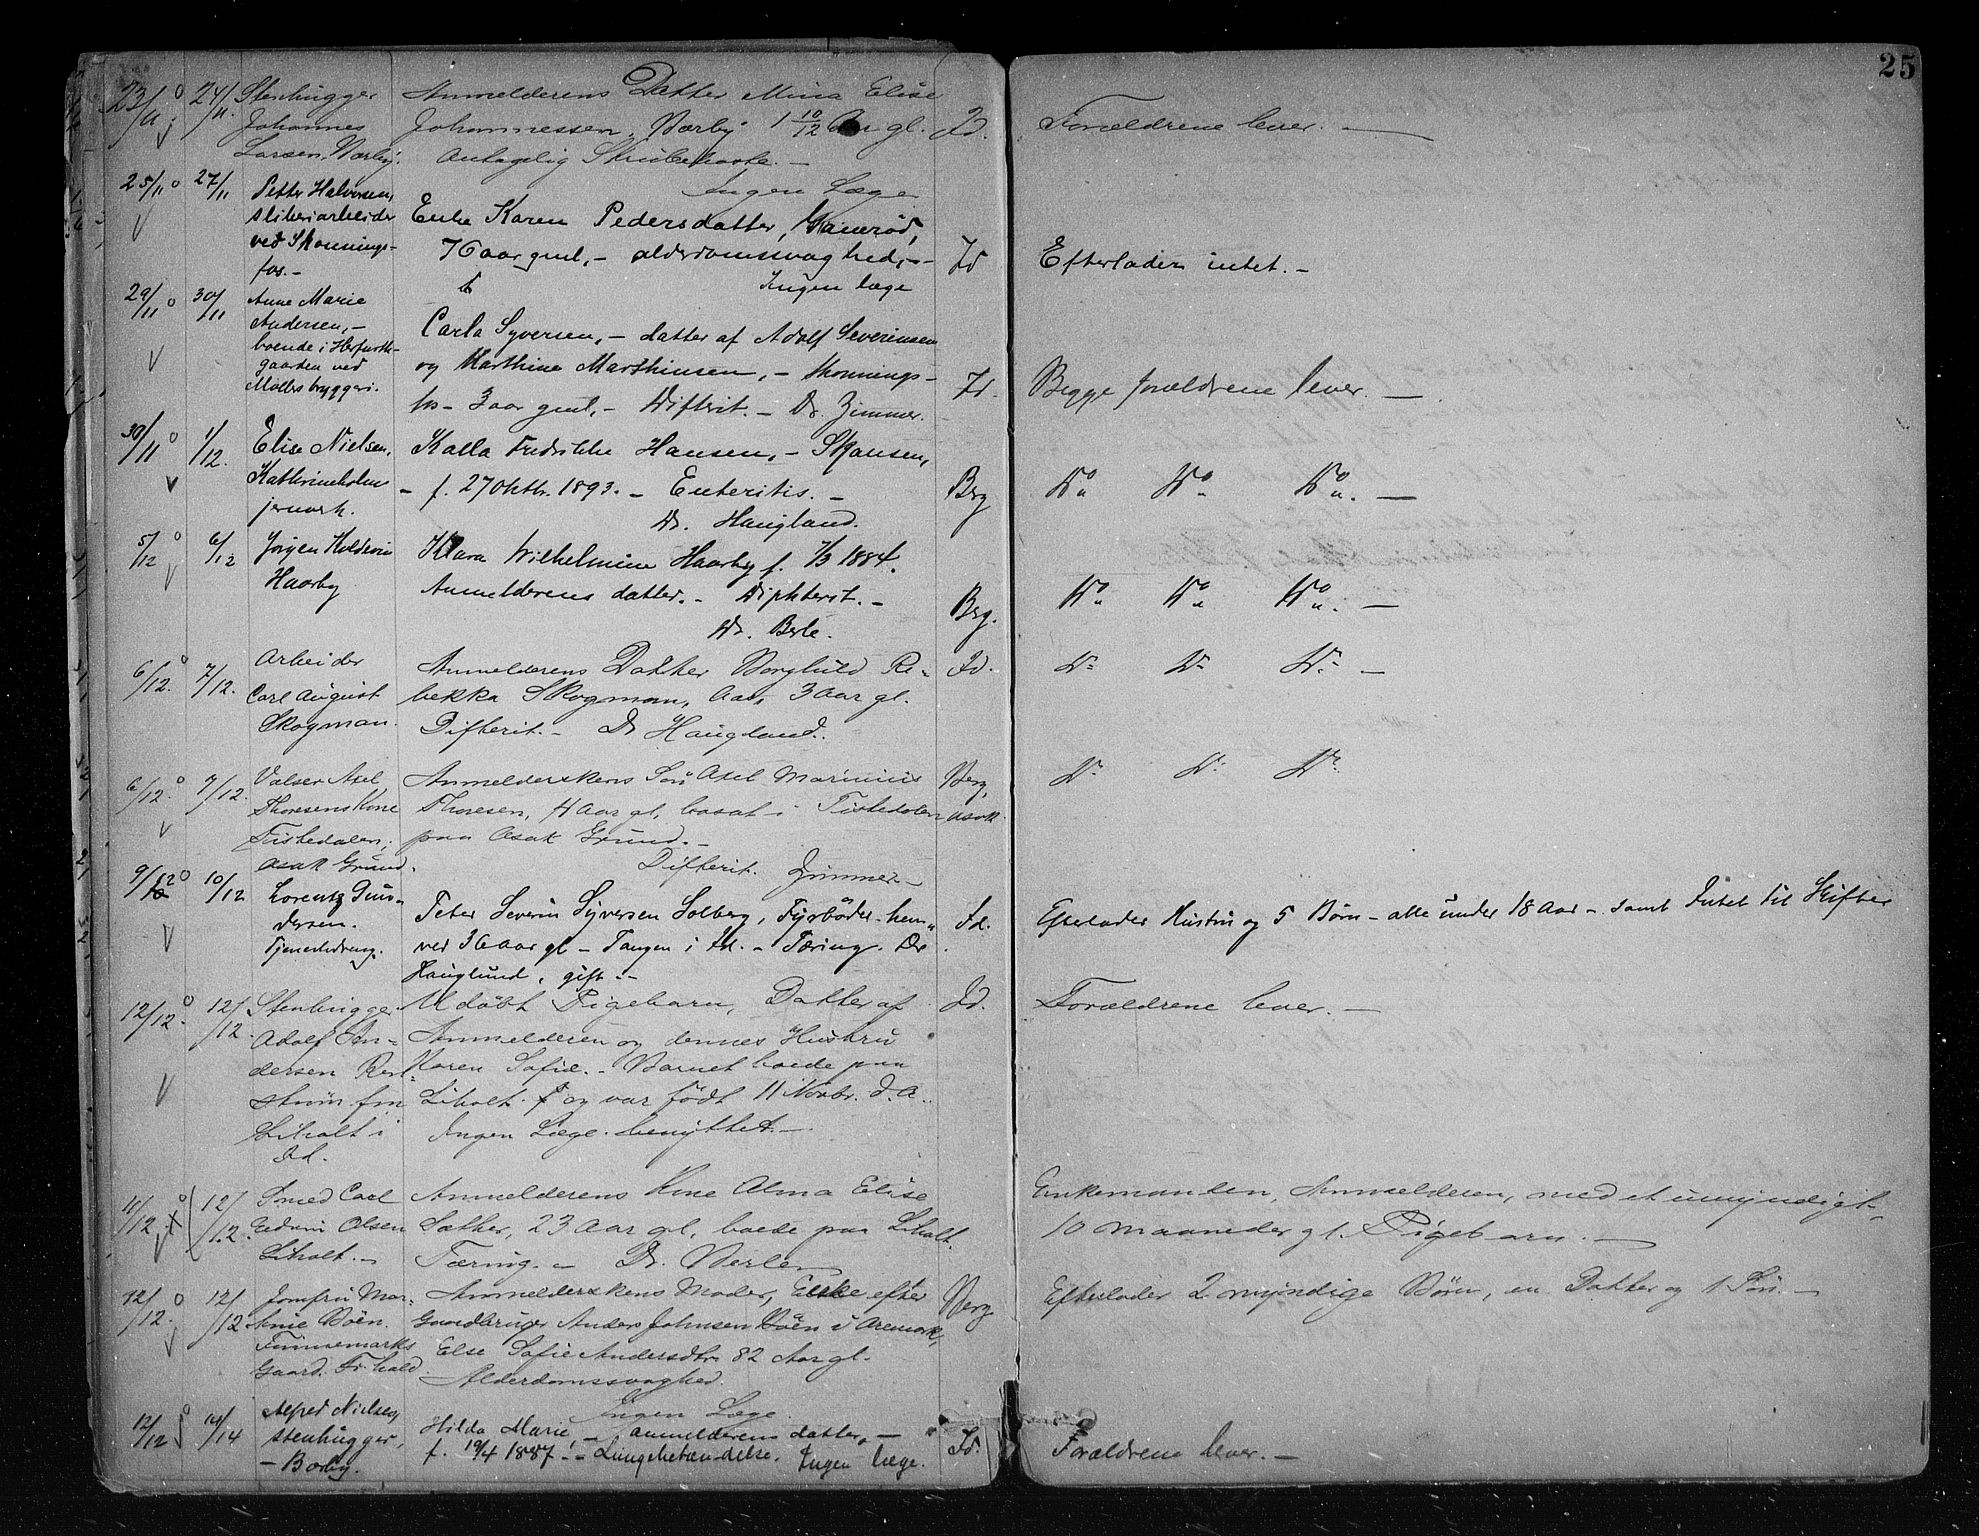 25
23/11 24/11 Stenhugger Anmelderens Datter Mina Elise
Johannes Johannessen, Børby 1 10/12 Aar gl. Id. Forældrene lever. —
Larsen, Børby. Antagelig Strubehoste. —
Ingen Læge
25/11 27/11 Petter Halvorsen,
sliberiarbeider Enke Karen Pedersdatter,
ved Skonnings- 76 aar gml, – alderdomssvaghed, – Id Efterlader intet. –
fos. – Ingen læge
29/11 30/11 Anne Marie
Andersen, – Carla Syversen, – datter af Adolf Severinsen
boende i Herfurth- og Marthine Marthinsen, – Skonnings-
gaarden ved fos – 3 aar gml, – Difterit. – Dr. Zimmer. Id. Begge forældrene lever. —
Møllers bryggeri.
30/11 1/12. Elise Nielsen, Kalla Fredrikke Hansen, – Skansen,
Kathrineholm – f. 27 Oktbr. 1893. – Enteritis. – Berg Do Do Do. —
jernverk. Dr. Haugland.
5/12 6/12 Jørgen Haldorin Klara Wilhelmine Haarby f. 1/3 1884.
Haarby Anmelderens datter. – Diphterit. – Berg. Do Do Do. —
Dr. Berle.
6/12. 7/12. Arbeider Anmelderens Datter Borghild Re- Id. Do Do Do. —
Carl August bekka Skogman, Aas, 3 Aar gl.
Skogman. Difterit. – Dr Haugland.
6/12. 7/12. Valser Axel Anmelderskens Søn Axel Marinius Berg, Do Do Do.
Thoresens Kone Thoresen, 4 Aar gl, bosat i Tistedalen Asak
Tistedalen, paa Asak Grund. –
Asak Grund. Difterit. Zimmer –
9/12 10/12 Lorentz Gun-
dersen. Peter Severin Syversen Solberg, Fyrbøder hen- Id. Efterlader Hustru og 5 Børn – alle under 18 Aar – samt Intet til Skifter
Tjenestedreng. ved 36 aar gl – Tangen i Id. – Tæring. Dr
Hauglund, gift. –
12/12. 12/12. Stenhugger Udøbt Pigebarn, Datter af Id. Forældrene lever. —
Adolf An- Anmelderen og dennes Hustru
dersen Karen Sofie. – Barnet boede paa
strøm fra Liholt og var født 11 Novbr. d. A.
Liholt i Ingen Læge benyttet. —
Id.
11/12. 12/12. Smed Carl Anmelderens Kone Alma Elise Enkemanden, Anmelderen, med et umyndigt
Edvin Olsen Sæther, 23 Aar gl, boede paa Liholt. 10 Maaneder gl. Pigebarn. —
Liholt. – Tæring. – Dr. Berle
12/12. 12/12 Jomfru Mar- Anmelderskens Moder, Enke efter Berg Efterlader 2 myndige Børn, en Datter og 1 Søn. —
thine Bøen. Gaardbruger Anders Johnsen Bøen i Aremark,
Finnemarks Else Sofie Andersdtr. 82 Aar gl.
Gaard. Fr.hald. Alderdomssvaghed.
Ingen Læge.
12/12 14/14 Alfred Nielsen, Hilda Marie, – anmelderens datter, –
stenhugger, f. 19/4 1887. – Lungebetændelse. Ingen læge. Id. Forældrene lever. —
– Børby.